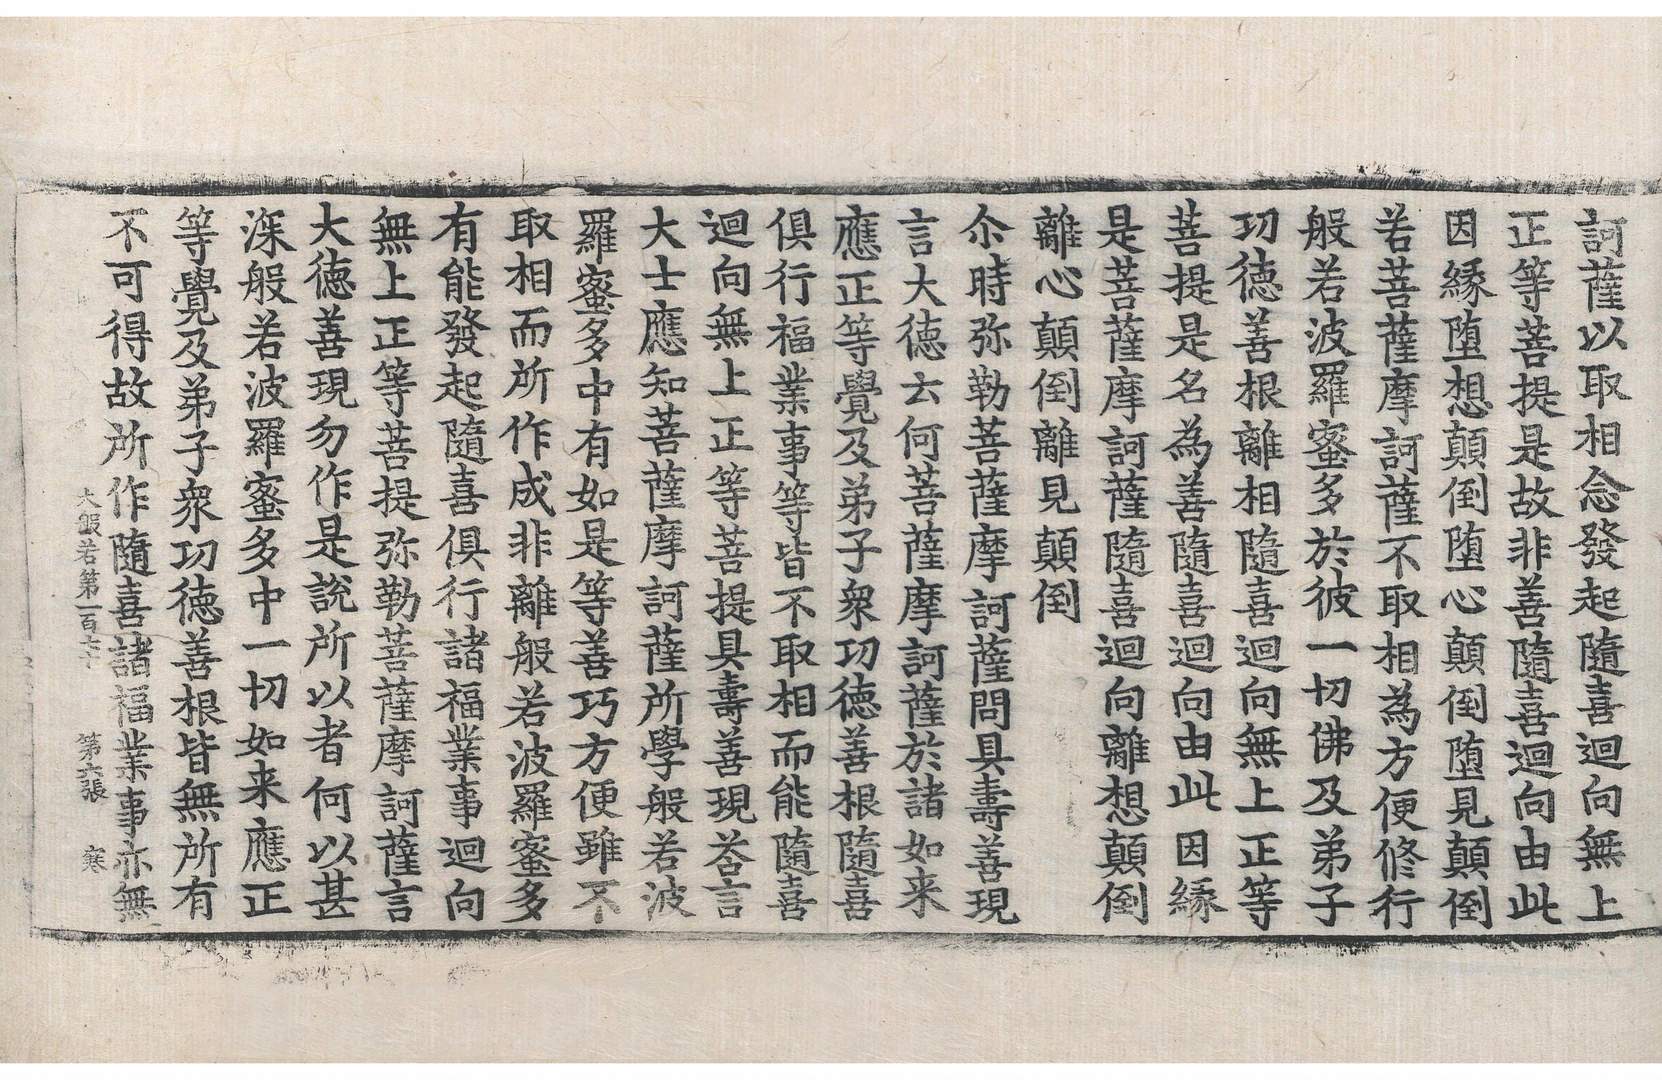 訶薩以取相念發起隨喜迴向無上
正等菩提是故非善隨喜迴向由此
因緣墮想顛倒墮心顛倒墮見顛倒
若菩薩摩訶薩不取相為方便修行
般若波羅蜜多於彼一切佛及弟子
功德善根離相隨喜迴向無上正等
菩提是名為善隨喜迴向由此因緣
是菩薩摩訶薩隨喜迴向離想顛倒
離心顛倒離見顛倒
尒時弥勒菩薩摩訶薩問具壽善現
言大德云何菩薩摩訶薩於諸如来
應正等覺及弟子衆功德善根隨喜
俱行福業事等皆不取相而能隨喜
迴向無上正等菩提具壽善現荅言
大士應知菩薩摩訶薩所學般若波
羅蜜多中有如是等善巧方便雖不
取相而所作成非離般若波羅蜜多
有能發起隨喜俱行諸福業事迴向
無上正等菩提弥勒菩薩摩訶薩言
大德善現勿作是說所以者何以甚
深般若波羅蜜多中一切如来應正
等覺及弟子衆功徳善根皆無所有
不可得故所作隨喜諸福業事亦無
大般若第一百六十 第六張 寒